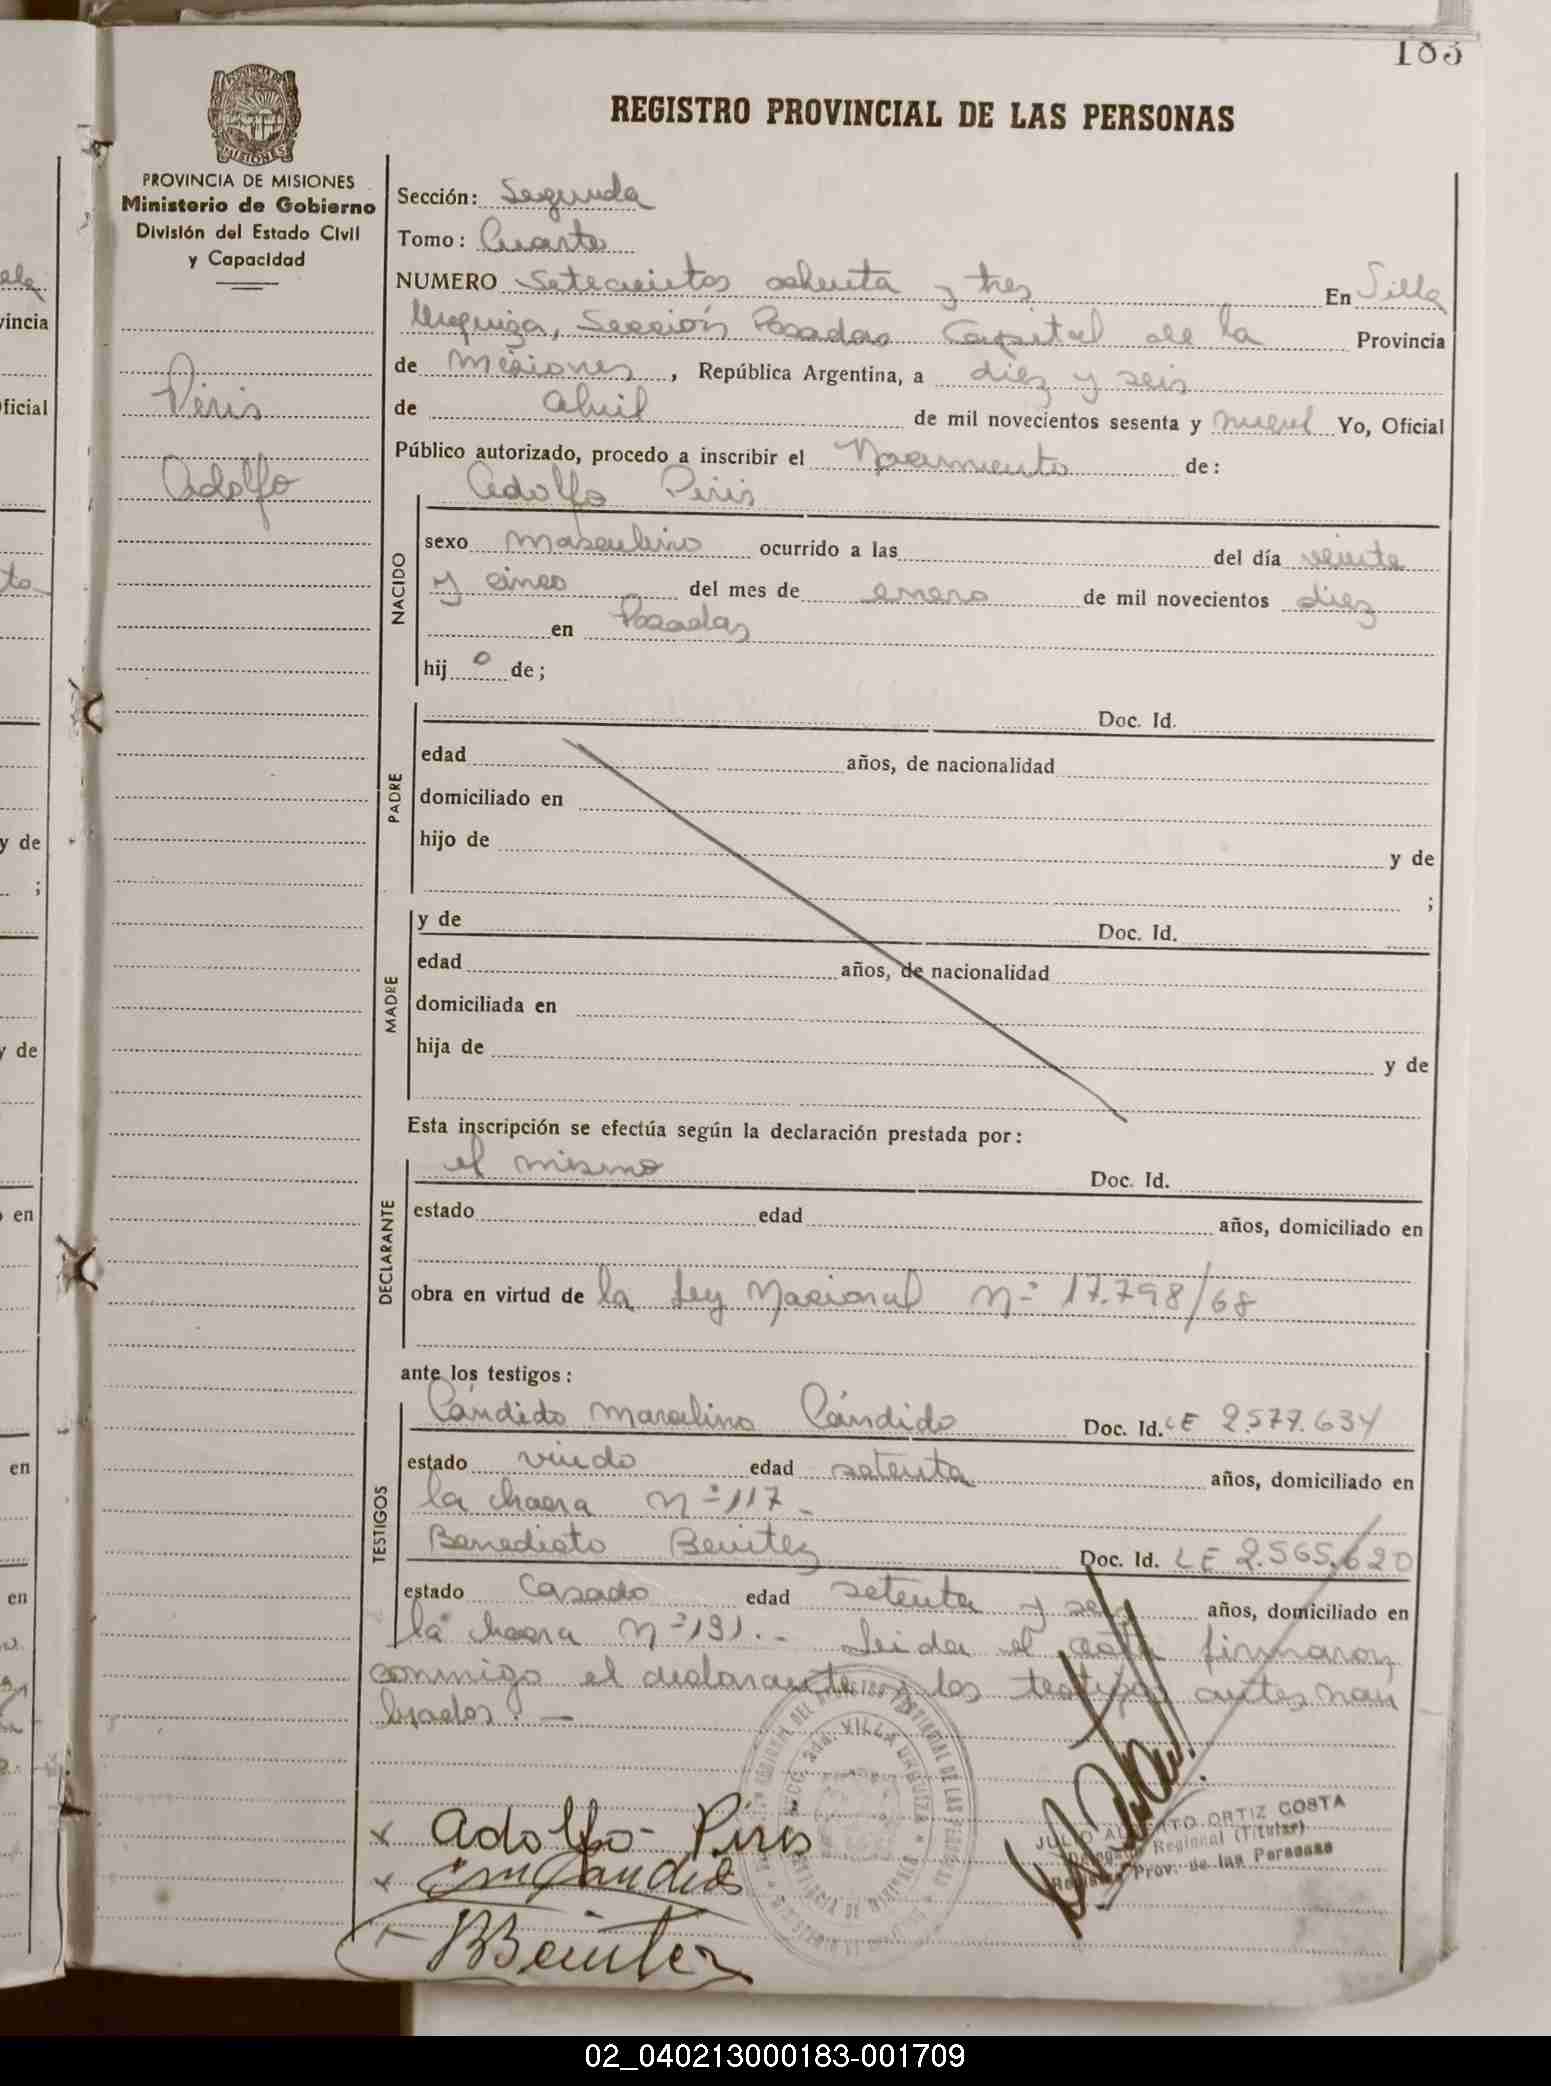 183
PROVINCIA DE MISIONES
PROVINCIA DE MISIONES
Ministerio de Gobierno
División del Estado Civil
y Capacidad
Piris
Adolfo
REGISTRO PROVINCIAL DE LAS PERSONAS
Sección: Segunda
Tomo: Cuarto
NUMERO Setecientos ochenta y tres En Villa
Urquiza, Sección Posadas Capital de la Provincia
de Misiones, República Argentina, a diez y seis
de abril de mil novecientos sesenta y nueve Yo, Oficial
Público autorizado, procedo a inscribir el Nacimiento de:
NACIDO
Adolfo Piris
sexo masculino ocurrido a las del día veinte
y cinco del mes de enero de mil novecientos diez
en Posadas
hij o de;
PADRE
Doc. Id.
edad años, de nacionalidad
domiciliado en
hijo de y de
;
MADRE
y de Doc. Id.
edad años, de nacionalidad
domiciliada en
hija de y de
Esta inscripción se efectúa según la declaración prestada por:
DECLARANTE
el mismo Doc. Id.
estado edad años, domiciliado en
obra en virtud de la Ley Nacional Nº 17.798/68
ante los testigos:
TESTIGOS
Cándido Marcelino Cándido Doc. Id. LE 2.577.634
estado viudo edad setenta años, domiciliado en
la chacra nº 117.-
Benedicto Benitez Doc. Id. LE 2.565.620
estado casado edad setenta y seis años, domiciliado en
la chacra nº 191.- Leida el acta firmaron
conmigo el declarante y los testigos antes nom
brados.-
Adolfo Piris
Candido
BBenitez
JULIO ALBERTO ORTIZ COSTA
Delegado Regional (Titular)
Registro Prov. de las Personas
VILLA URQUIZA
vincia
oficial
y de
;
y de
en
en
en
02_040213000183-001709